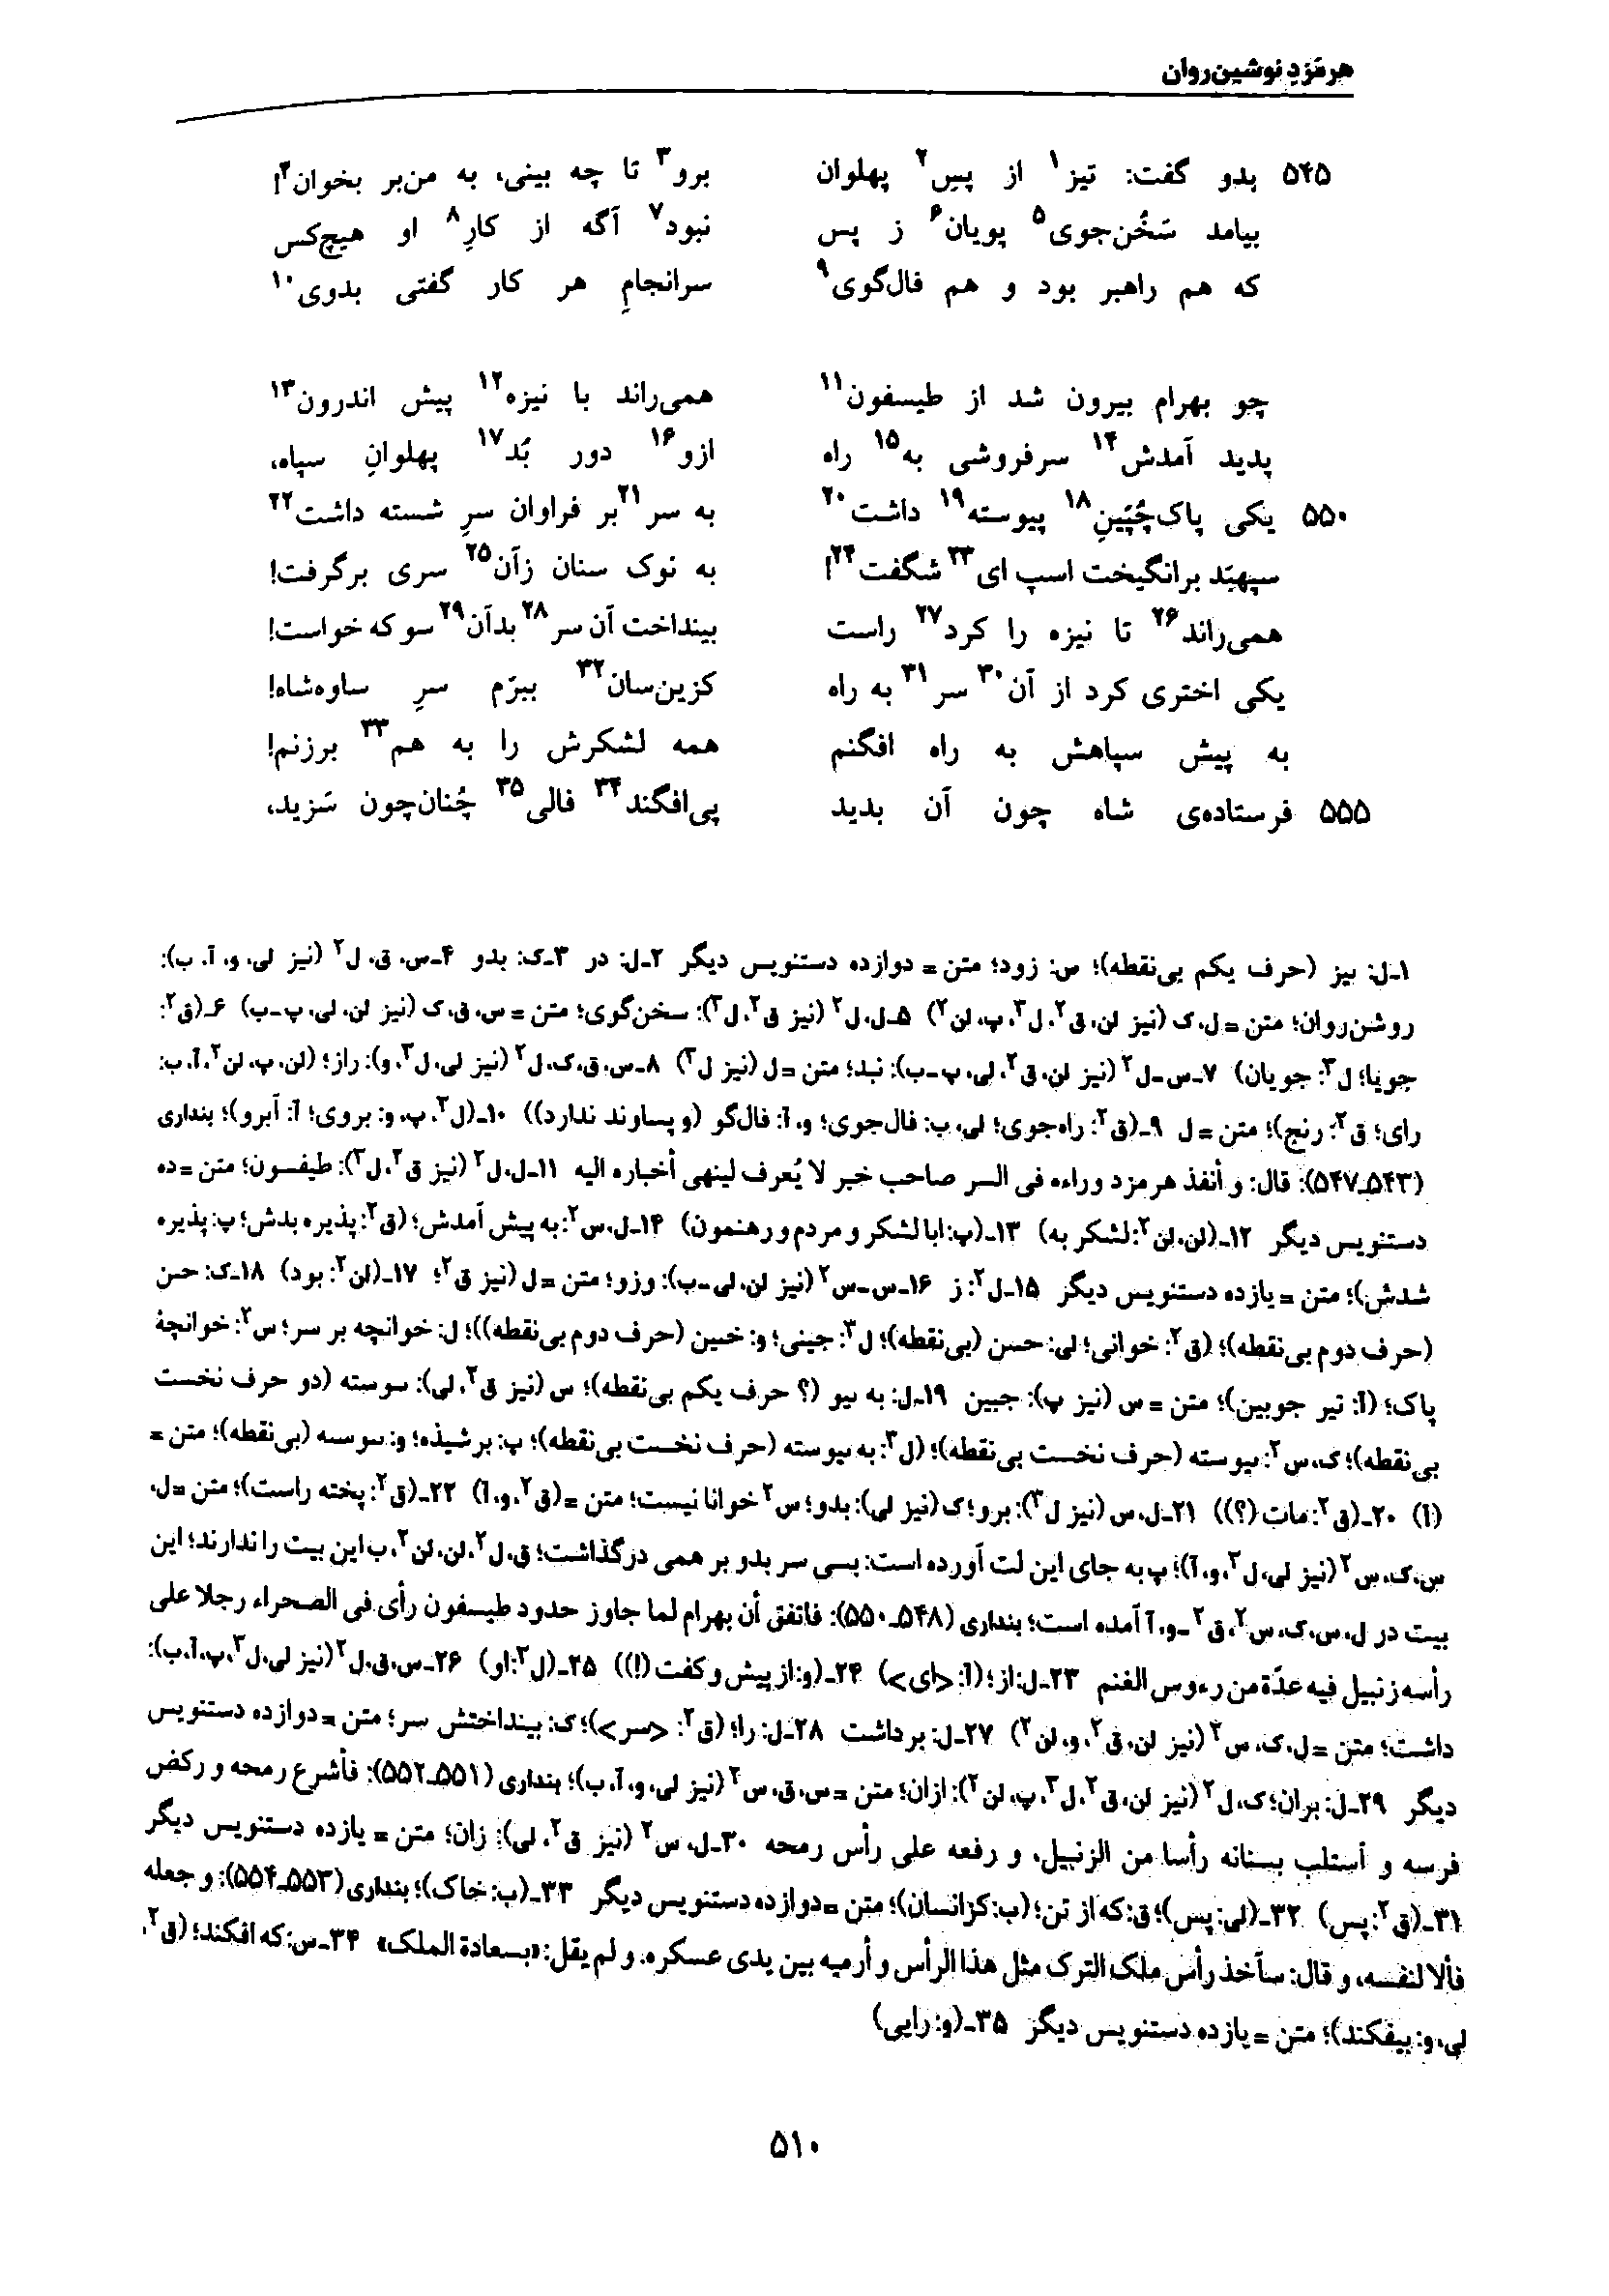 هرمَزدِ نوشین‌روان
۵۴۵ بدو گفت: تیز۱ از پسِ۲ پهلوان برو۳ تا چه بینی، به من‌بر بخوان۴!
بیامد سَخُن‌جوی۵ پویان۶ ز پس نبود۷ آگه از کارِ۸ او هیچ‌کس
که هم راهبر بود و هم فال‌گوی۹ سرانجامِ هر کار گفتی بدوی۱۰
چو بهرام بیرون شد از طیسفون۱۱ همی‌راند با نیزه۱۲ پیش اندرون۱۳
پدید آمدش۱۴ سرفروشی به۱۵ راه ازو۱۶ دور بُد۱۷ پهلوانِ سپاه،
۵۵۰ یکی پاک‌چُپّینِ۱۸ پیوسته۱۹ داشت۲۰ به سر۲۱بر فراوان سرِ شسته داشت۲۲
سپهبَد برانگیخت اسپ ای۲۳ شگفت۲۴! به نوک سنان زآن۲۵ سری برگرفت!
همی‌راند۲۶ تا نیزه را کرد۲۷ راست بینداخت آن سر۲۸ بدآن۲۹ سو که خواست!
یکی اختری کرد از آن۳۰ سر۳۱ به راه کزین‌سان۳۲ ببرّم سرِ ساوه‌شاه!
به پیش سپاهش به راه افگنم همه لشکرش را به هم۳۳ برزنم!
۵۵۵ فرستاده‌ی شاه چون آن بدید پی‌افگند۳۴ فالی۳۵ چُنان‌چون سَزید،
۱ـ‌ل: بیز (حرف یکم بی‌نقطه)؛ س: زود؛ متن = دوازده دستنویس دیگر ۲ـ‌ل: در ۳ـ‌ک: بدو ۴ـ‌س، ق، ل۲ (نیز لی، و، آ، ب):
روشن‌روان؛ متن = ل، ک (نیز لن، ق۲، ل۳، پ، لن۲) ۵ـ‌ل، ل۲ (نیز ق۲، ل۳): سخن‌گوی؛ متن = س، ق، ک (نیز لن، لی، پ ـ ب) ۶ـ(ق۲:
جویا؛ ل۳: جویان) ۷ـ‌س ـ ل۲ (نیز لن، ق۲، لی، پ ـ ب): نبد؛ متن = ل (نیز ل۳) ۸ـ‌س، ق، ک، ل۲ (نیز لی، ل۳، و): راز؛ (لن، پ، لن۲، آ، ب:
رای؛ ق۲: رنج)؛ متن = ل ۹ـ(ق۲: راه‌جوی؛ لی، ب: فال‌جوی؛ و، آ: فال‌گو (و پساوند ندارد)) ۱۰ـ(ل۳، پ، و: بروی؛ آ: آبرو)؛ بنداری
(۵۴۳ـ۵۴۷): قال: و أنفذ هرمزد وراءه فی السر صاحب خبر لا یُعرف لینهی أخباره الیه ۱۱ـ‌ل، ل۲ (نیز ق۲، ل۳): طیفسون؛ متن = ده
دستنویس دیگر ۱۲ـ(لن، لن۲: لشکر به) ۱۳ـ(پ: ابا لشکر و مردم و رهنمون) ۱۴ـ‌ل، س۲: به پیش آمدش؛ (ق۲: پذیره بدش؛ پ: پذیره
شدش)؛ متن = یازده دستنویس دیگر ۱۵ـ‌ل۲: ز ۱۶ـ‌س ـ س۲ (نیز لن، لی ـ ب): وزو؛ متن = ل (نیز ق۲؛ ۱۷ـ(لن۲: بود) ۱۸ـ‌ک: حسن
(حرف دوم بی‌نقطه)؛ (ق۲: خوانی؛ لی: حسن (بی‌نقطه)؛ ل۳: جینی؛ و: خسین (حرف دوم بی‌نقطه))؛ ل: خوانچه بر سر؛ س۲: خوانچهٔ
پاک؛ (آ: تیر جوبین)؛ متن = س (نیز پ): جبین ۱۹ـ‌ل: به ىیو (؟ حرف یکم بی‌نقطه)؛ س (نیز ق۲، لی): ىىوسته (دو حرف نخست
بی‌نقطه)؛ ک، س۲: ىیوسته (حرف نخست بی‌نقطه)؛ (ل۳: به ىیوسته (حرف نخست بی‌نقطه)؛ پ: برشیذه؛ و: ىىوسىه (بی‌نقطه)؛ متن =
(آ) ۲۰ـ(ق۲: مات (؟)) ۲۱ـ‌ل، س (نیز ل۳): برو؛ ک (نیز لی): بدو؛ س۲ خوانا نیست؛ متن = (ق۲، و، آ) ۲۲ـ(ق۲: پخته راست)؛ متن = ل،
س، ک، س۲ (نیز لی، ل۳، و، آ)؛ پ به جای این لت آورده است: بسی سر بدو بر همی درگذاشت؛ ق، ل۲، لن، لن۲، ب این بیت را ندارند؛ این
بیت در ل، س، ک، س۲، ق۲ ـ و، آ آمده است؛ بنداری (۵۴۸ـ۵۵۰): فاتفق أن بهرام لما جاوز حدود طیسفون رأی فی الصحراء رجلا علی
رأسه زنبیل فیه عدّة من رءوس الغنم ۲۳ـ‌ل: از؛ (آ: <ای>) ۲۴ـ(و: از پیش و کفت (!)) ۲۵ـ(ل۳: او) ۲۶ـ‌س، ق، ل۲ (نیز لی، ل۳، پ، آ، ب):
داشت؛ متن = ل، ک، س۲ (نیز لن، ق۲، و، لن۲) ۲۷ـ‌ل: برداشت ۲۸ـ‌ل: را؛ (ق۲: <سر>)؛ ک: بینداختش سر؛ متن = دوازده دستنویس
دیگر ۲۹ـ‌ل: بران؛ ک، ل۲ (نیز لن، ق۲، ل۳، پ، لن۲): ازان؛ متن = س، ق، س۲ (نیز لی، و، آ، ب)؛ بنداری (۵۵۱ـ۵۵۲): فأشرع رمحه و رکض
فرسه و أستلب بسنانه رأسا من الزنبیل، و رفعه علی رأس رمحه ۳۰ـ‌ل، س۲ (نیز ق۲، لی): زان؛ متن = یازده دستنویس دیگر
۳۱ـ(ق۲: پس) ۳۲ـ(لی: پس)؛ ق: که از تن؛ (ب: کزانسان)؛ متن = دوازده دستنویس دیگر ۳۳ـ(ب: خاک)؛ بنداری (۵۵۳ـ۵۵۴): و جعله
فألا لنفسه، و قال: سآخذ رأس ملک الترک مثل هذا الرأس و أرمیه بین یدی عسکره. و لم یقل: «بسعادة الملک» ۳۴ـ‌س: که افکند؛ (ق۲،
لی، و: بیفکند)؛ متن = یازده دستنویس دیگر ۳۵ـ(و: رایی)
۵۱۰